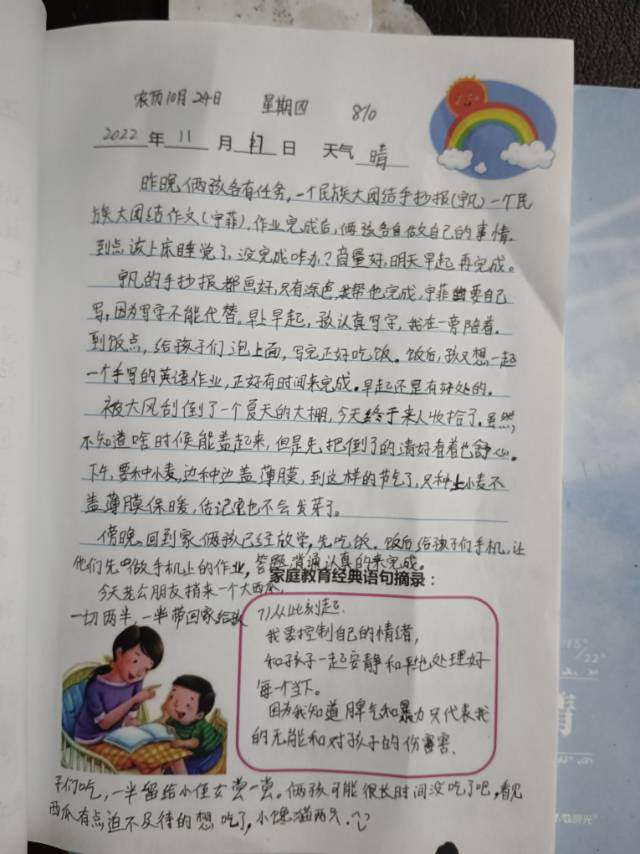 农历10月24日 星期四 810
2022年 11月 17日 天气 晴
昨晚俩孩各有任务,一个民族大团结手抄报(宁凡)一个民
族大团结作文(宁菲),作业完成后,俩孩各自做自己的事情.
到点该上床睡觉了,没完成咋办?商量好,明天早起再完成。
宁凡的手抄报都画好,只有涂色,我帮他完成,宁菲要自己
写,因为写字不能代替,早上早起,孩认真写字,我在一旁陪着.
到饭点,给孩子们泡上面,写完正好吃饭。饭后,孩又想一起
一个手写的英语作业,正好有时间来完成。早起还是有好处的.
被大风刮倒了一个夏天的大棚,今天终于来人收拾了。虽然,
不知道啥时候能盖起来,但是先把倒了的清好看着也舒心。
下午,要种小麦,边种边盖薄膜,到这样的节气了,只种上小麦不
盖薄膜保暖,估记也不会发芽了。
傍晚,回到家俩孩已经放学,先吃饭。饭后给孩子们手机,让
他们先做手机上的作业,答题消消认真的来完成。
家庭教育经典语句摘录:
今天老公朋友捎来一个大西瓜,
一切两半,一半带回家给孩
7)从此刻起.
我要控制自己的情绪,
和孩子一起安静和平地处理好
每一个当下。
因为我知道脾气和暴力只代表我
的无能和对孩子的伤害.
子们吃,一半留给小侄女尝一尝。俩孩可能很长时间没吃了吧,看见
西瓜有点迫不及待的想吃了,小馋猫两只.
晨光